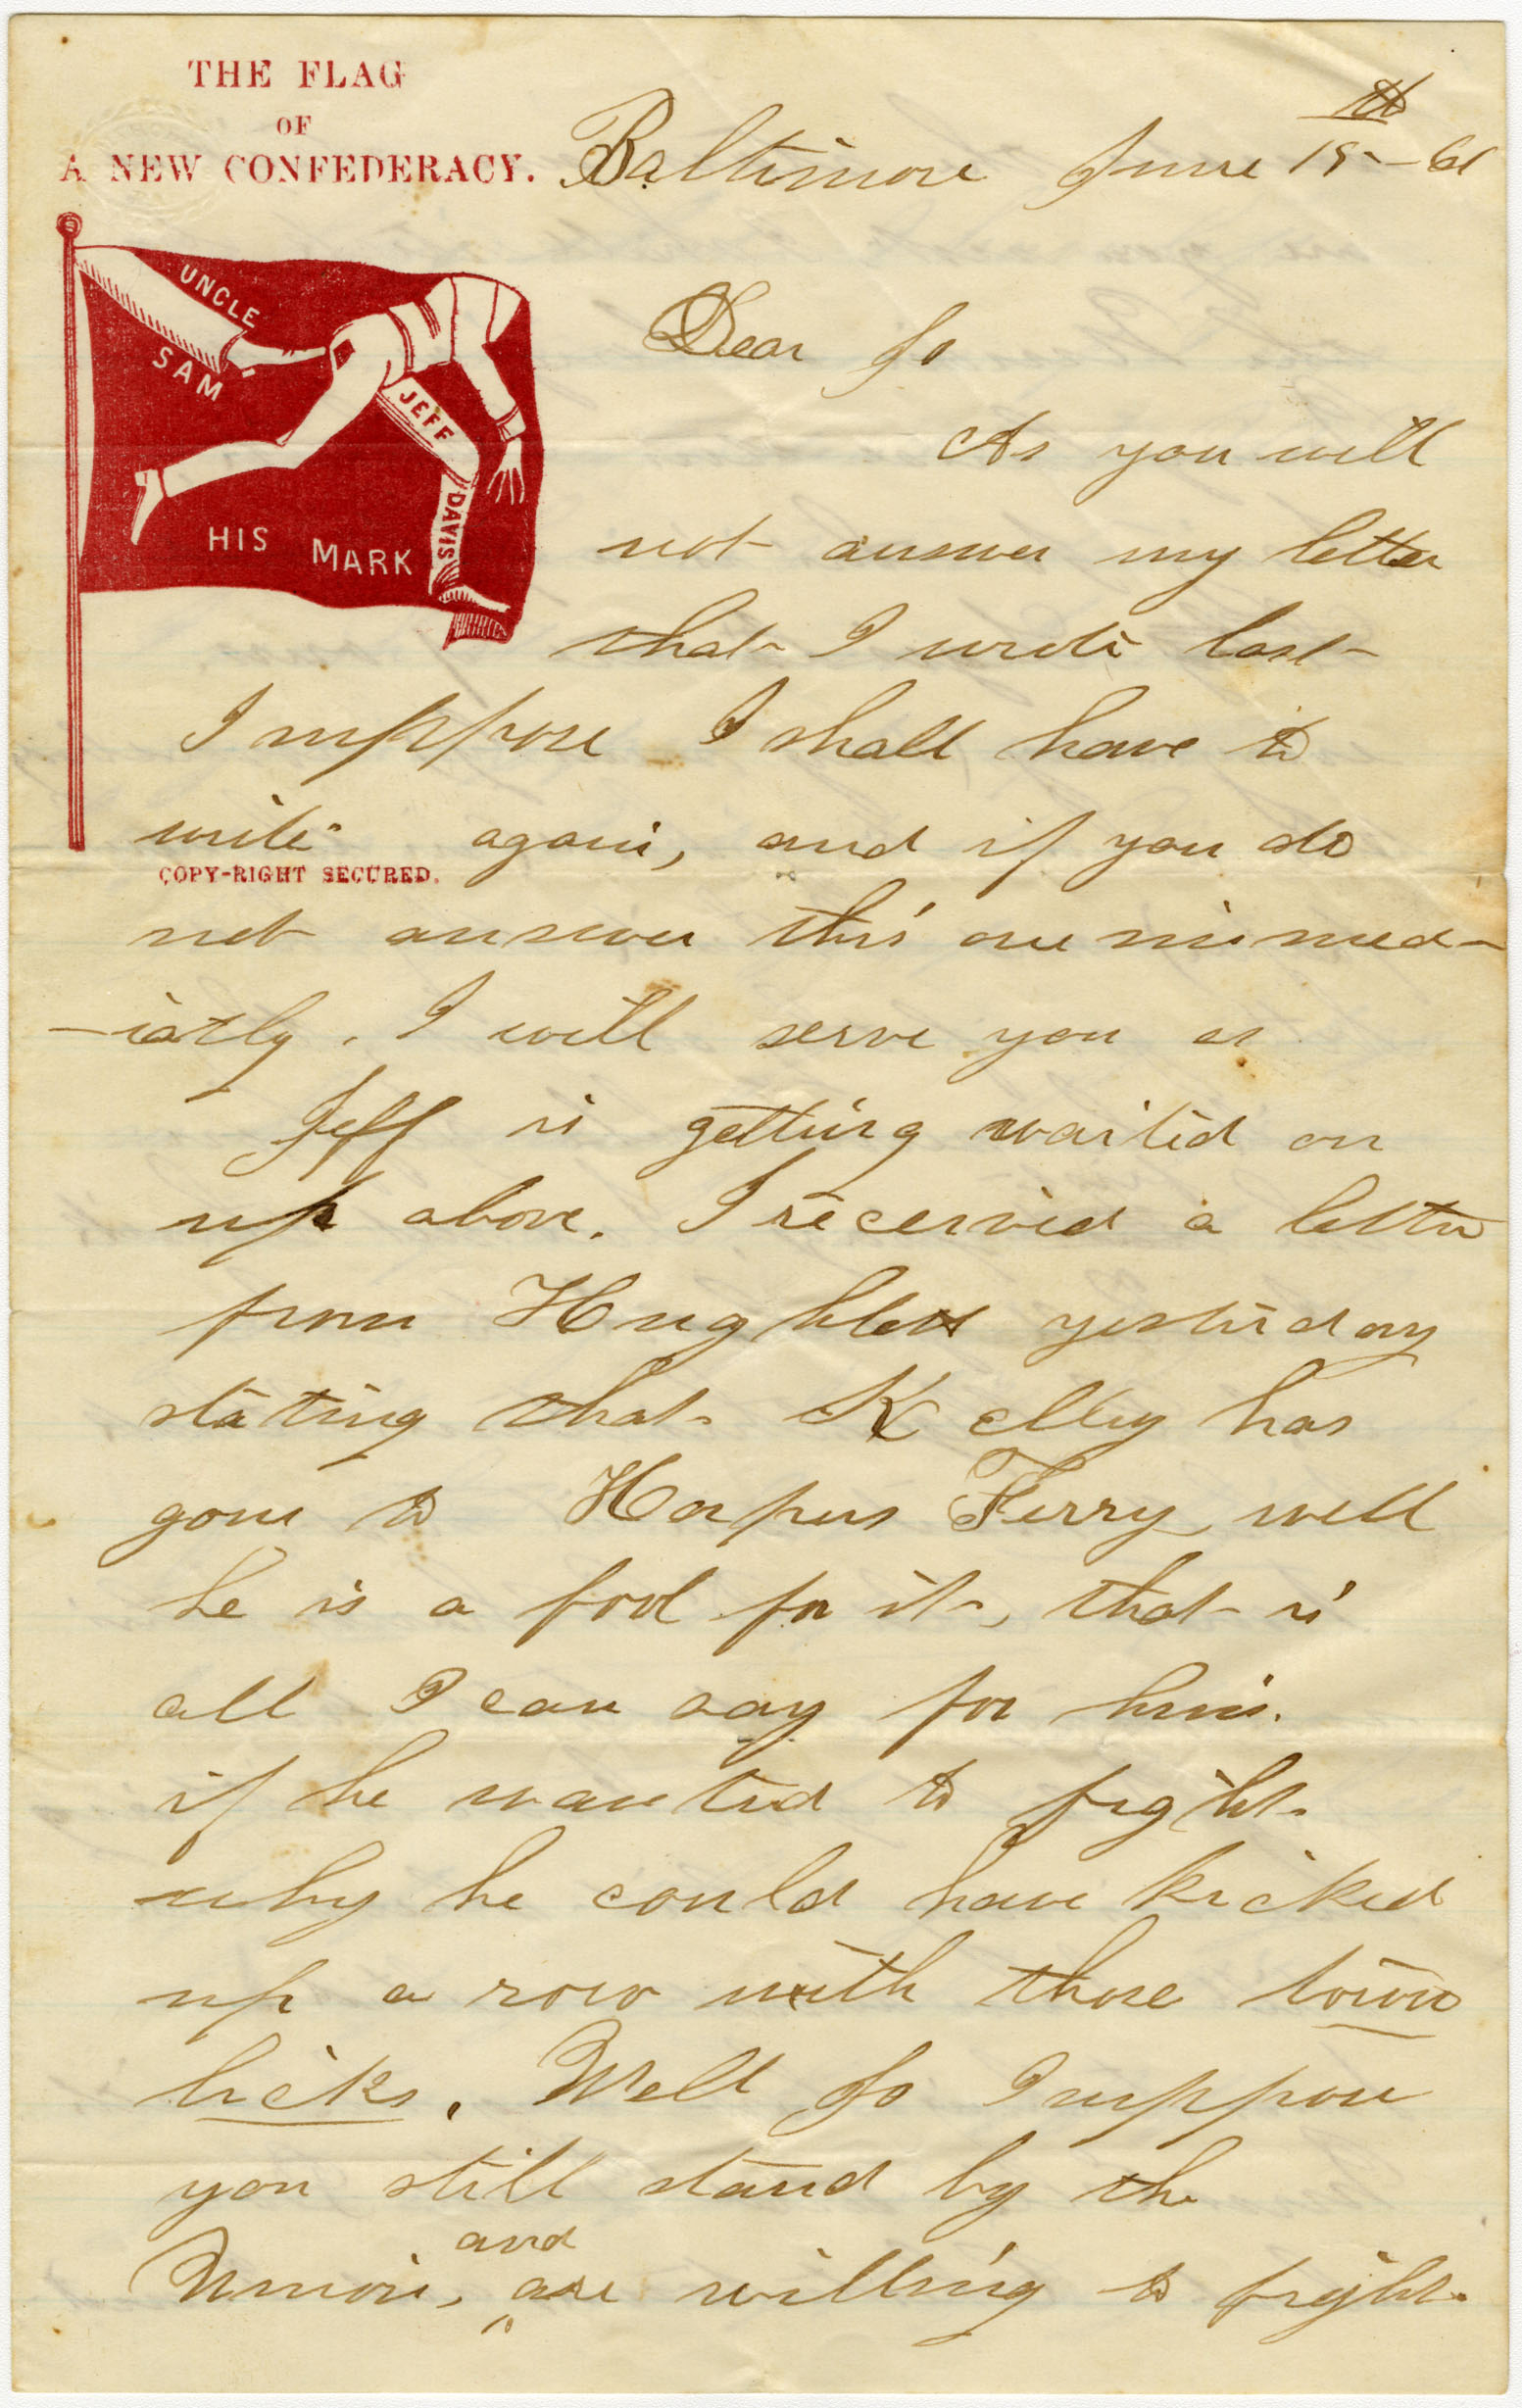 THE FLAG
OF
A NEW CONFEDERACY.
UNCLE
SAM
JEFF
DAVIS
HIS MARK
COPY-RIGHT SECURED.
Baltimore June 15th -61
Dear Jo
As you will
not answer my letter
that I wrote last
I suppose I shall have to
write again, and if you do
not answer this one immed-
-iatly, I will serve you as
Jeff is getting waited on
up above. I received a letter
from Hughlett yesterday
stating that Kelley has
gone to Harpers Ferry, well
he is a fool for it, that is
all I can say for him.
if he wanted to fight
why he could have kicked
up a row with those town
hicks. Well Jo I suppose
you still stand by the
Union, and are willing to fight